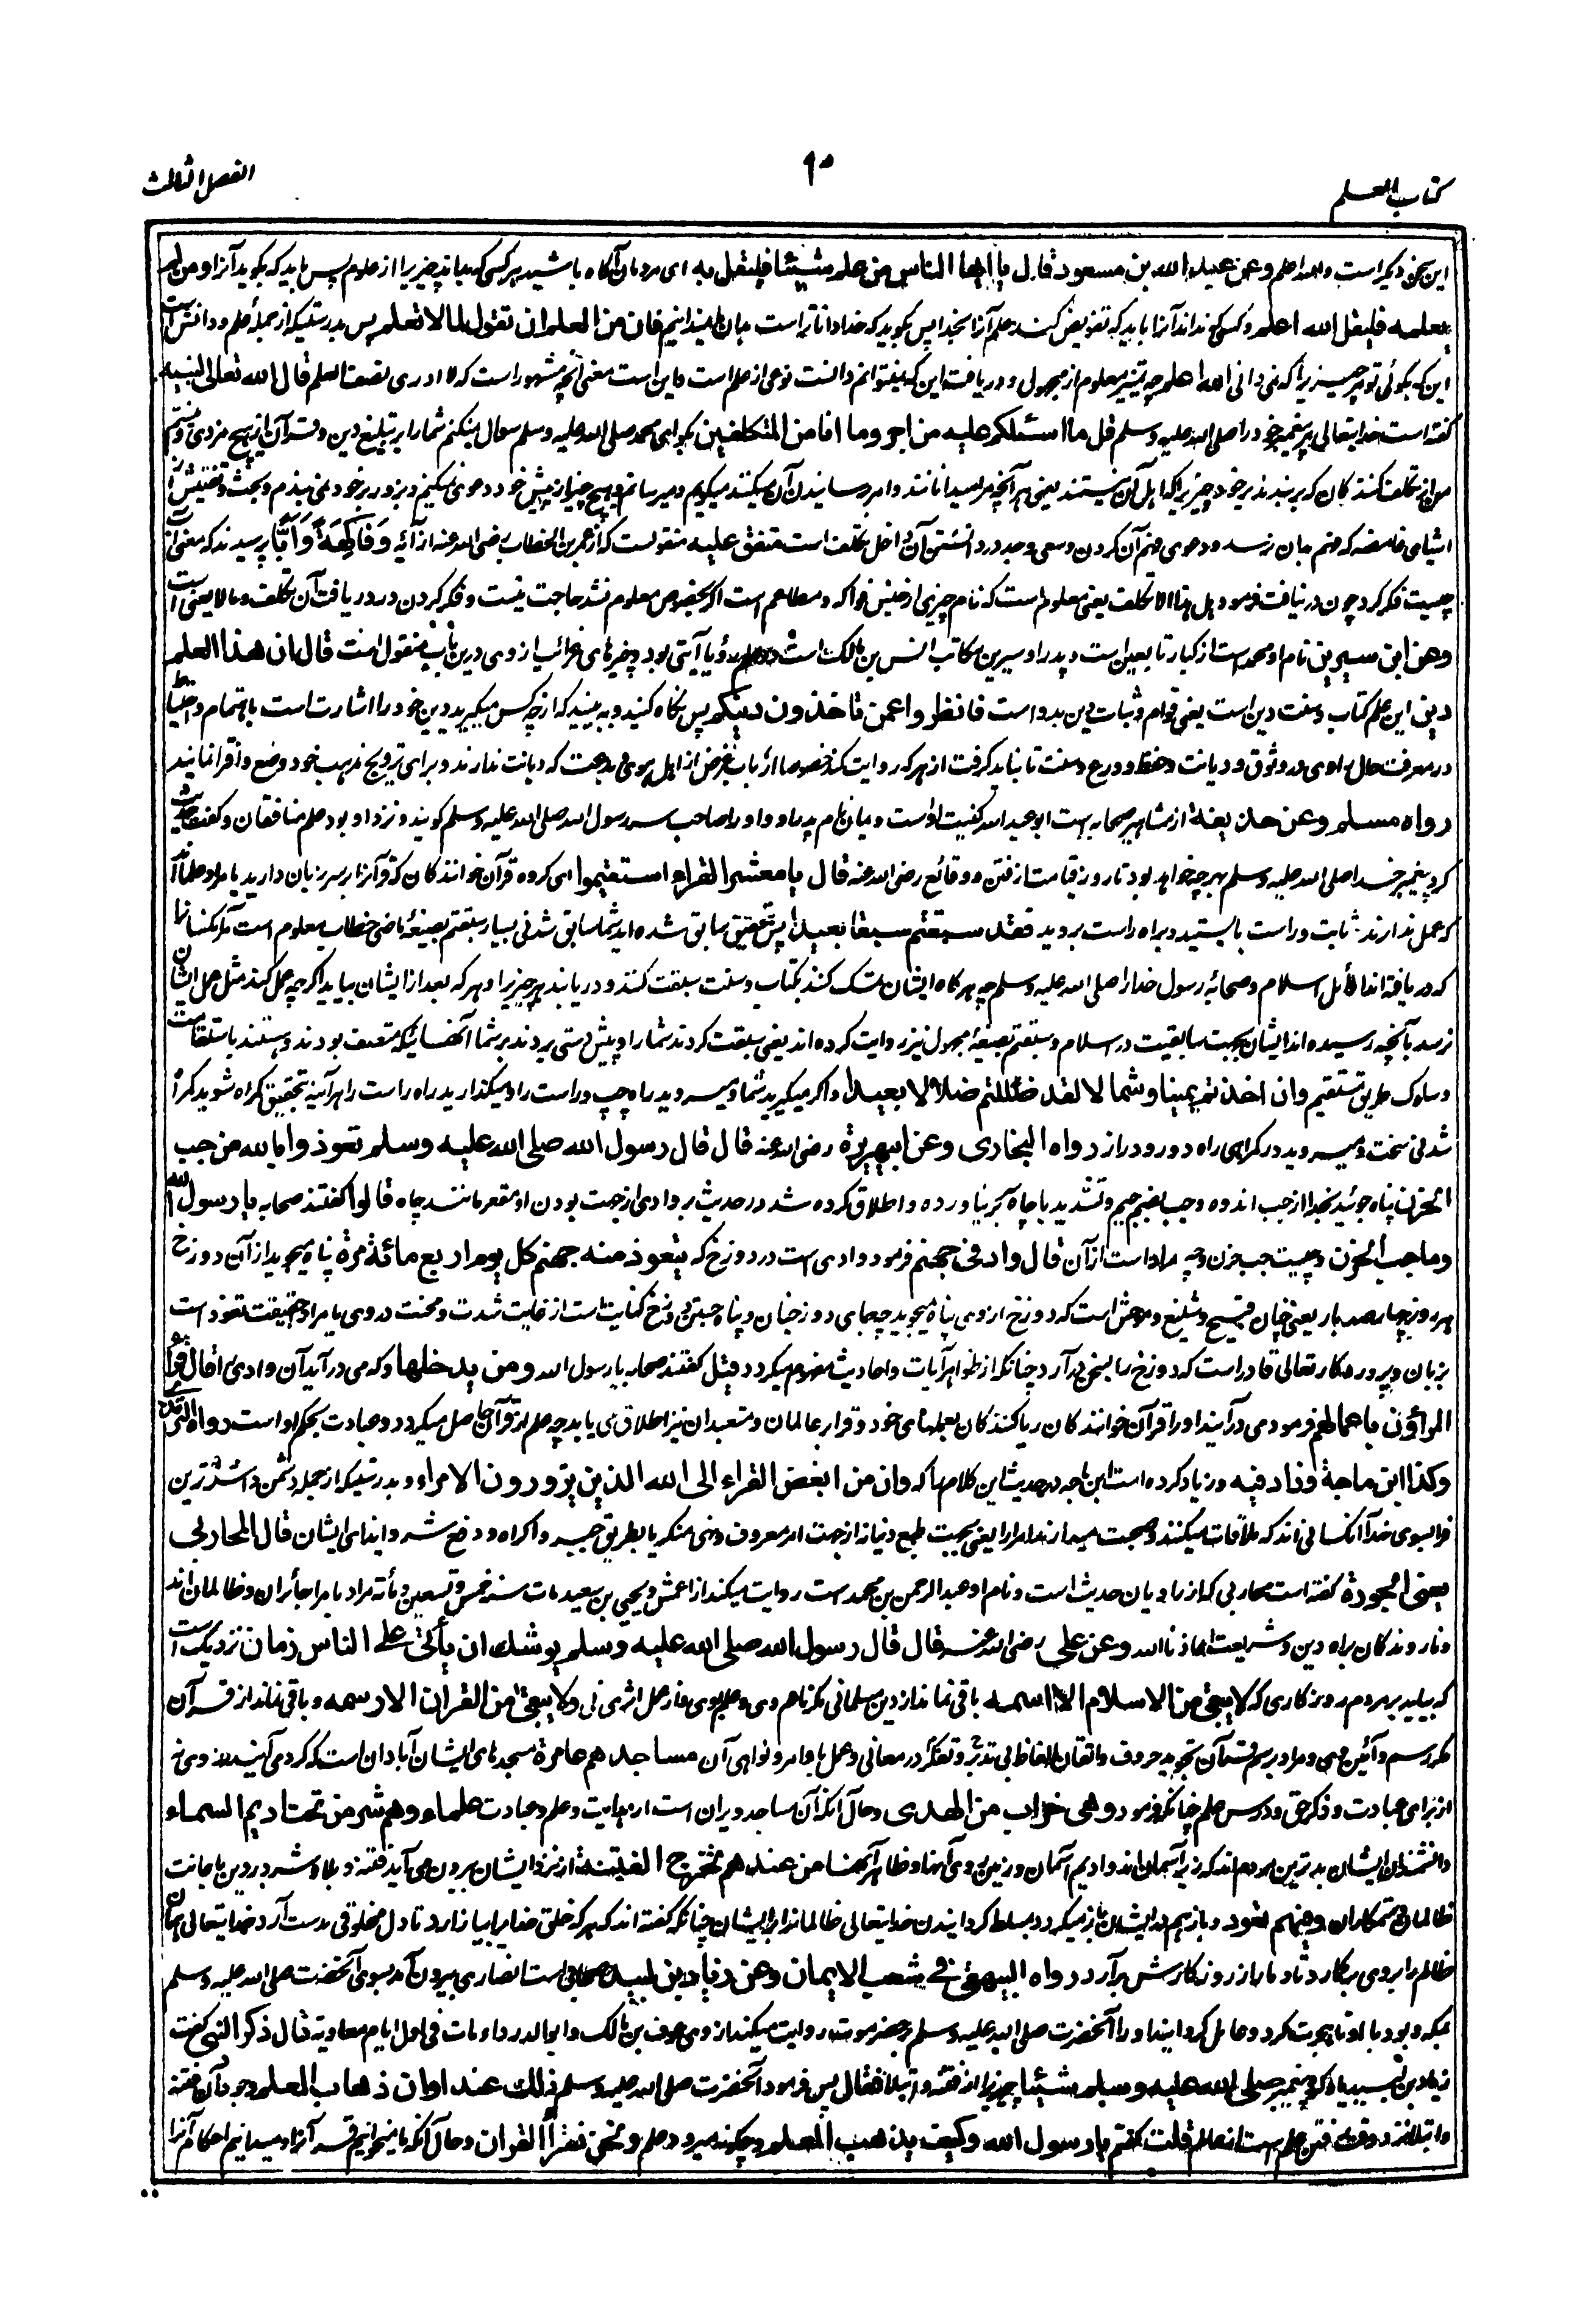 کتاب العلم
۹۰
الفصل الثالث
این سخن دیگر است والله اعلم وعن عبد الله بن مسعود قال یا ایها الناس من علم شیئا فلیقل به ای مردمان آگاه باشید هر کسی که بداند چیزی را از علوم پس باید که بگوید آنرا ومن لم
یعلمه فلیقل الله اعلم و کسی که نداند آنرا باید که تفویض کند علم آنرا بخدا پس بگوید که خدا داناتر است فان من العلم ان تقول لما لا تعلم پس بدرستیکه از جملهٔ علم و دانش است
این که بگوئی تو هر چیزی را که نمی دانی الله اعلم چه تمییز معلوم از مجهول و دریافت این که نمیتوانم دانست نوعی از علم است و این است معنی آنچه مشهور است که لا ادری نصف العلم قال الله تعالی لنبیه
گفته است خدایتعالی پیغمبر خود را صلی الله علیه وسلم قل ما اسئلکم علیه من اجر وما انا من المتکلفین بگو ای محمد صلی الله علیه وسلم سوال نمیکنم شما را بر تبلیغ دین و قرآن هیچ مزدی و نیستم
من از تکلف کنندگان که بربندند بر خود چیزی را که اهل آن نیستند یعنی هر آنچه مرا میدانانند و امر برسانیدن آن میکنند میگویم و میرسانم و هیچ چیز از پیش خود دعوی نمیکنم و بزور بر خود نمی بندم و بحث و تفتیش از
اشیای غامضه که فهم بدان نرسد و دعوی فهم آن کردن و سعی و جد در دانستن آن داخل تکلف است متفق علیه منقولست که از عمر بن الخطاب رضی الله عنه از آیه وَفَاكِهَةً وَأَبًّا پرسیدند که معنی اب
چیست فکر کرد چون در نیافت فرمود هل هذا الا تکلف یعنی معلوم است که نام چیزی از جنس فواکه و مطاعم است اگر بخصوص معلوم نشد حاجت نیست و فکر کردن در دریافت آن تکلف و مالا یعنی است
وعن ابن سیرین نام او محمد است از کبار تابعین است و پدر او سیرین مکاتب انس بن مالک است در علم رؤیا آیتی بود و چیزهای غرائب از وی درین باب منقول است قال ان هذا العلم
دین این علم کتاب و سنت دین است یعنی قوام و ثبات دین بدو است فانظروا عمن تاخذون دینکم پس نگاه کنید و به بینید که از چه کس میگیرید دین خود را اشارت است باهتمام و احتیاط
در معرفت حال راوی در وثوق و دیانت و حفظ و ورع و سنت تا نباید گرفت از هر که روایت کند خصوصا ارباب غرض از اهل هوی و بدعت که دیانت ندارند و برای ترویج مذهب خود وضع و افترا نمایند
رواه مسلم وعن حذیفة از مشاهیر صحابه است ابو عبد الله کنیت اوست و یمان نام پدر او و او را صاحب سر رسول الله صلی الله علیه وسلم گویند و نزد او بود علم منافقان و گفته
کرد پیغمبر خدا صلی الله علیه وسلم بهر چه خواهد بود تا روز قیامت از فتن و وقائع رضی الله عنه قال یا معشر القراء استقیموا ای گروه قرآن خوانندگان که قرآنرا بر سر زبان دارید یا مراد علما اند
که عمل ندارند ثابت و راست باستید و براه راست بروید فقد سبقتم سبقا بعیدا پس بتحقیق سابق شده اید شما سابق شدنی بسیار سبقتم بصیغهٔ ماضی خطاب معلوم است مر کسانرا
که دریافته اند اوائل اسلام و صحابهٔ رسول خدا را صلی الله علیه وسلم چه هرگاه ایشان تمسک کنند بکتاب و سنت سبقت کنند و دریابند هر چیز را و هر که بعد از ایشان بیاید اگر چه عمل کند مثل عمل ایشان
نرسد بآنچه رسیده اند ایشان بجهت سابقیت در اسلام و سبقتم بصیغهٔ مجهول نیز روایت کرده اند یعنی سبقت کردند شما را و پیش دستی بردند بر شما آنکسانیکه متصف بودند و هستند باستقامت
و سلوک طریق مستقیم وان اخذتم یمینا وشمالا لقد ضللتم ضلالا بعیدا و اگر میگیرید شما و میروید راه چپ و راست را و میگذارید راه راست را هر آئینه بتحقیق گمراه شوید گمراه
شدنی سخت و میروید در گمراهی راه دور و دراز رواه البخاری وعن ابی هریرة رضی الله عنه قال قال رسول الله صلی الله علیه وسلم تعوذوا بالله من جب
الحزن پناه جوئید بخدا از جب اندوه و جب بضم جیم و تشدید با چاه گر بنا ورده و اطلاق کرده شد در حدیث بر وادی از جهت بودن او مقعر مانند چاه قالوا گفتند صحابه یا رسول الله
وما جب الحزن و چیست جب حزن و چه مراد است از آن قال واد فی جهنم فرمود وادی است در دوزخ که یتعوذ منه جهنم کل یوم اربع مائة مرة پناه میجوید از آن دوزخ
هر روز چهار صد بار یعنی چنان قبیح و شنیع و موحش است که دوزخ از وی پناه میجوید چه جای دوزخیان و پناه جستن دوزخ کنایت است از غایت شدت و محنت در وی یا مراد حقیقت تعوذ است
بزبان و پروردگار تعالی قادر است که دوزخ را بسخن در آرد چنانکه از ظواهر آیات و احادیث مفهوم میگردد قیل گفتند صحابه یا رسول الله ومن یدخلها و که می در آید آن وادی را قال القراء
المراؤن باعمالهم فرمود می درآیند او را قرآن خوانندگان ریا کنندگان بعملهای خود و قراء بر عالمان و متعبدان نیز اطلاق می یابد چه علم از قرآن حاصل میگردد و عبادت بحکم او است رواه الترمذی
وکذا ابن ماجة وزاد فیه و زیاد کرده است ابن ماجه در حدیث این کلام را که وان من ابغض القراء الی الله الذین یزورون الامراء و بدرستیکه از جمله دشمن داشته ترین
قرا بسوی خدا آنکسانی اند که ملاقات میکنند و صحبت میدارند امرا را یعنی بجهت طمع دنیا نه از جهت امر معروف و نهی منکر یا بطریق جبر و اکراه و دفع شر و ایذای ایشان قال المحاربی
یعنی الجورة گفته است محاربی که از راویان حدیث است و نام او عبد الرحمن بن محمد است روایت میکند از اعمش و یحیی بن سعید مات سنة خمس و تسعین و مأته مراد بامرا جائران و ظالمان اند
و ناروندگان براه دین و شریعت اعاذنا الله وعن علی رضی الله عنه قال قال رسول الله صلی الله علیه وسلم یوشك ان یأتی علی الناس زمان نزدیک است
که بیاید بر مردم روزگاری که لا یبقی من الاسلام الا اسمه باقی نماند از دین مسلمانی مگر نام وی ولا یبقی من القران الا رسمه و باقی نماند از قرآن
مگر رسم و آئین وی و مراد برسم قرآن تجوید حروف و اتقان الفاظ بی تدبر و تفکر در معانی و عمل باوامر و نواهی آن مساجدهم عامرة مسجدهای ایشان آبادان است که گرد می آیند در وی نه
از برای عبادت و ذکر حق و درس علم چنانکه فرمود وهی خراب من الهدی و حال آنکه آن مساجد ویران است از هدایت و علم و عبادت علماءهم شر من تحت ادیم السماء
دانشمندان ایشان بدترین مردم اند که زیر آسمان اند و ادیم آسمان و زمین روی آنها و ظاهر آنها من عندهم تخرج الفتنة از نزد ایشان بیرون می آید فتنه و بلا و شر در دین باعانت
ظالمان و ستمکاران وفیهم تعود و باز هم در ایشان باز میگردد بمسلط گردانیدن خدایتعالی ظالمانرا بر ایشان چنانکه گفته اند که هر که خلق خدا را بیازارد تا دل مخلوقی بدست آرد خدایتعالی همان
ظالم را بروی برگمارد تا دمار از روزگارش برآرد رواه البیهقی فی شعب الایمان وعن زیاد بن لبید صحابی است انصاری بیرون آمد بسوی آنحضرت صلی الله علیه وسلم
بمکه و بود با او تا هجرت کرد و عامل گردانید او را آنحضرت صلی الله علیه وسلم بر حضرموت روایت میکند از وی عوف بن مالک و ابو الدرداء مات فی اول ایام معاویة قال ذکر النبی گفت
زیاد بن لبید یاد کرد پیغمبر صلی الله علیه وسلم شیئا چیزی را از فتنه و ابتلا فقال پس فرمود آنحضرت صلی الله علیه وسلم ذلك عند اوان ذهاب العلم وجود آن فتنه
و ابتلا نزد وقت رفتن علم است از عالم قلت گفتم یا رسول الله وکیف یذهب العلم و چگونه میرود علم ونحن نقرأ القران و حال آنکه ما میخوانیم قرآنرا و میدانیم احکام آنرا